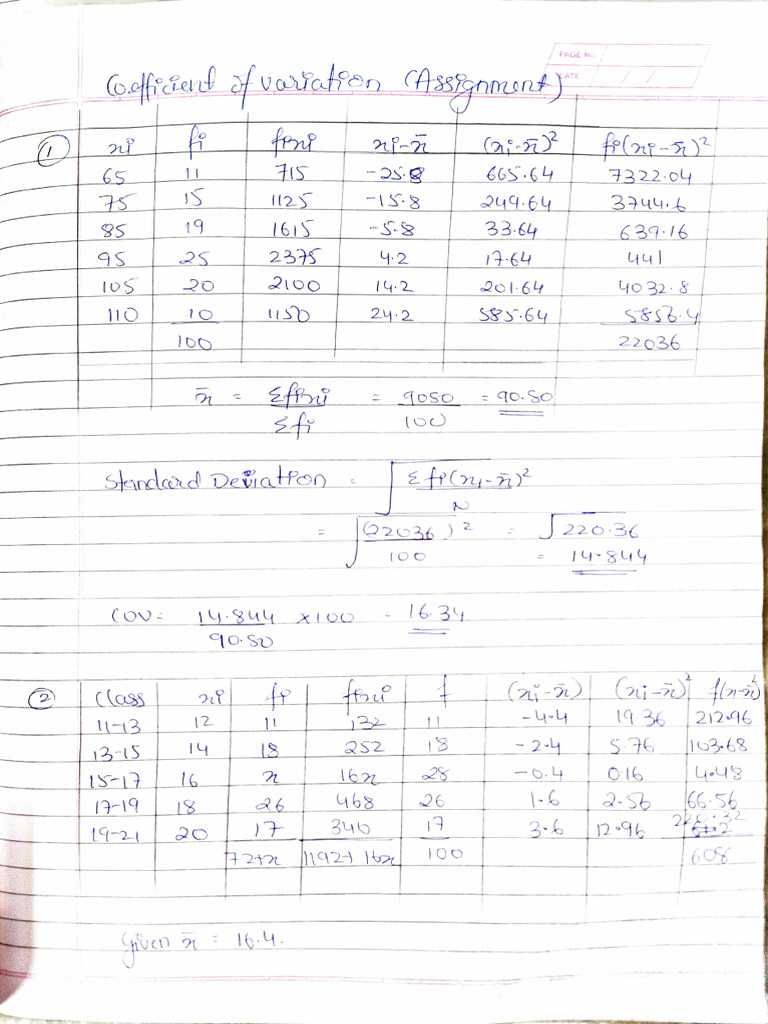 PAGE No.
DATE / /
Co.efficient of variation (Assignment)
① xi fi fixi xi-x̄ (xi-x̄)² fi(xi-x̄)²
65 11 715 -25.8 665.64 7322.04
75 15 1125 -15.8 249.64 3744.6
85 19 1615 -5.8 33.64 639.16
95 25 2375 4.2 17.64 441
105 20 2100 14.2 201.64 4032.8
110 10 1150 24.2 585.64 5856.4
100 22036
x̄ = Σfixi / Σfi = 9080 / 100 = 90.80
Standard Deviation = √(Σfi(xi-x̄)² / N)
= √((22036)² / 100) = √220.36
= 14.844
COV = 14.844 / 90.80 ×100 = 16.34
② Class xi fi fixi f (xi-x̄) (xi-x̄)² f(x-x̄)²
11-13 12 11 132 11 -4.4 19.36 212.96
13-15 14 18 252 18 -2.4 5.76 103.68
15-17 16 x 16x 28 -0.4 0.16 4.48
17-19 18 26 468 26 1.6 2.56 66.56
19-21 20 17 340 17 3.6 12.96 220.32
72+x 1192+16x 100 608
Given x̄ = 16.4.